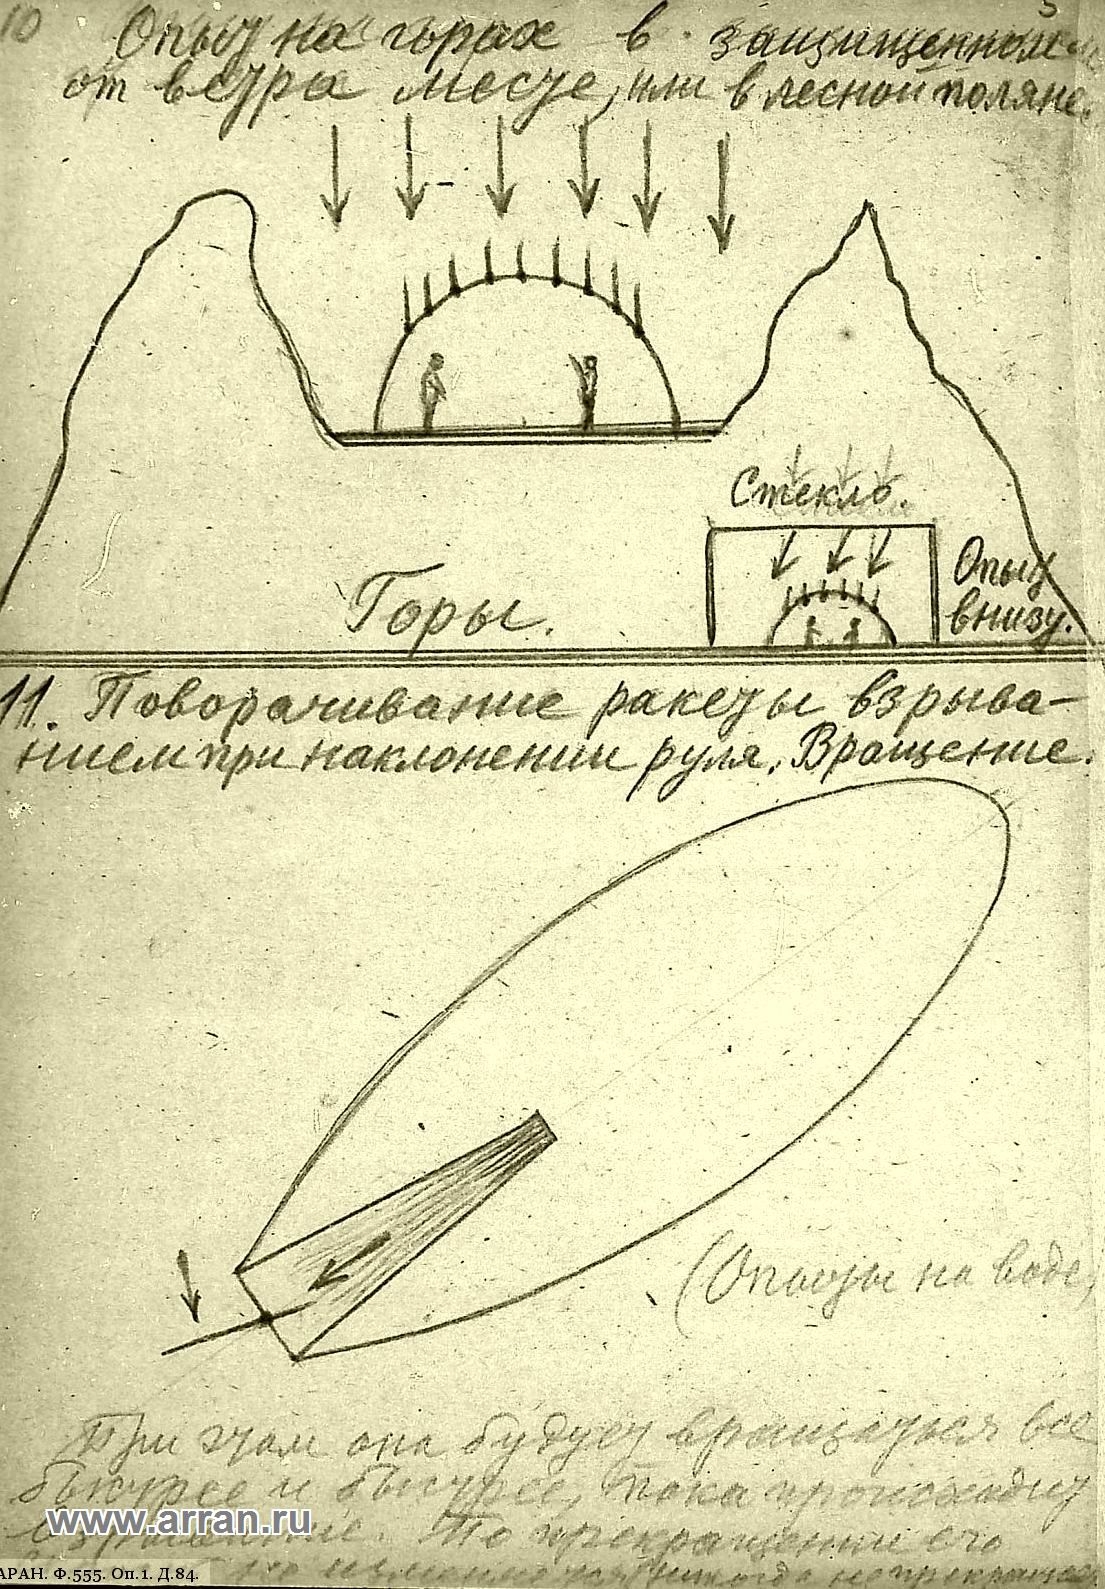 10
Опыт на горах в защищенном
от ветра месте, или в лесной поляне.
Стекло.
Опыт
внизу.
Горы.
11. Поворачивание ракеты взрыва-
нием при наклонении руля. Вращение.
(Опыты на воде)
При этом она будет вращаться все
быстрее и быстрее, пока происходит
По прекращении его
никогда не прекращает
www.arran.ru
АРАН. Ф.555. Оп.1. Д.84.